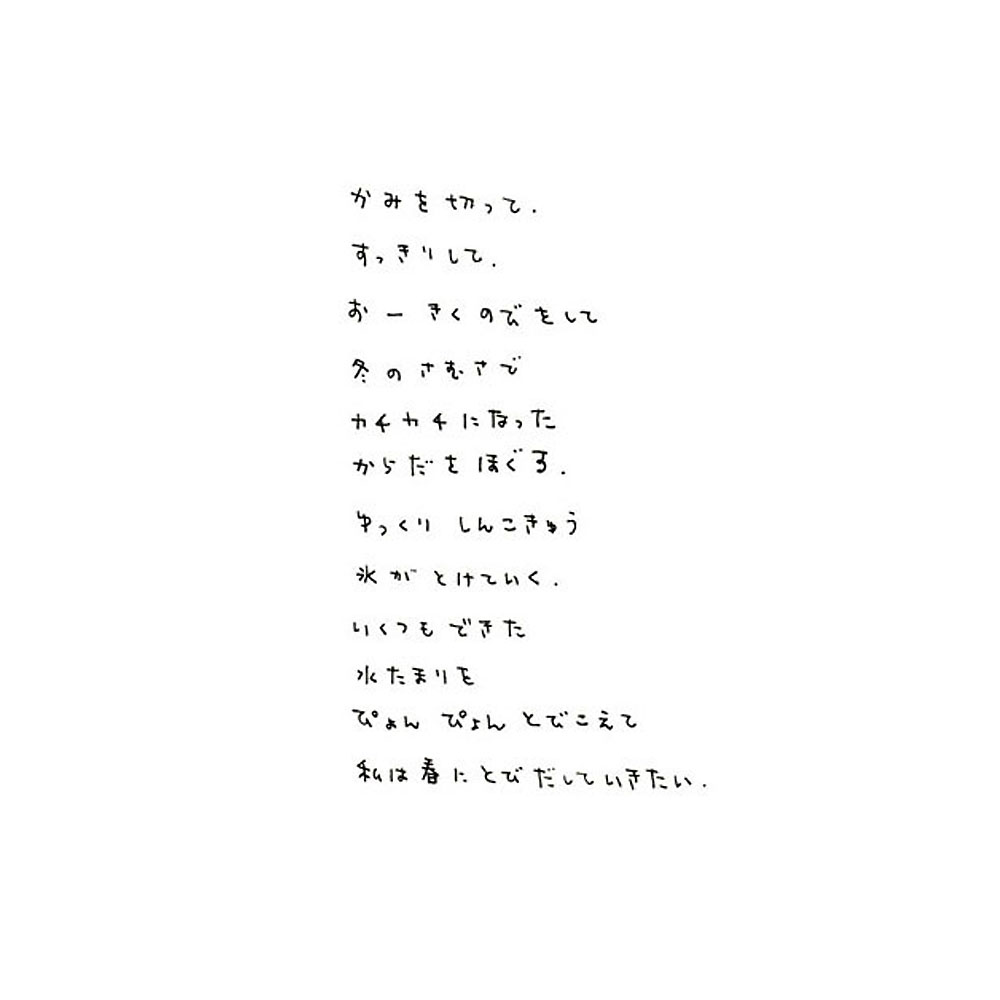 かみを切って.
すっきりして.
おーきくのびをして
冬のさむさで
カチカチになった
からだをほぐす.
ゆっくり しんこきゅう
氷がとけていく.
いくつもできた
水たまりを
ぴょん ぴょん とびこえて
私は春にとびだしていきたい.